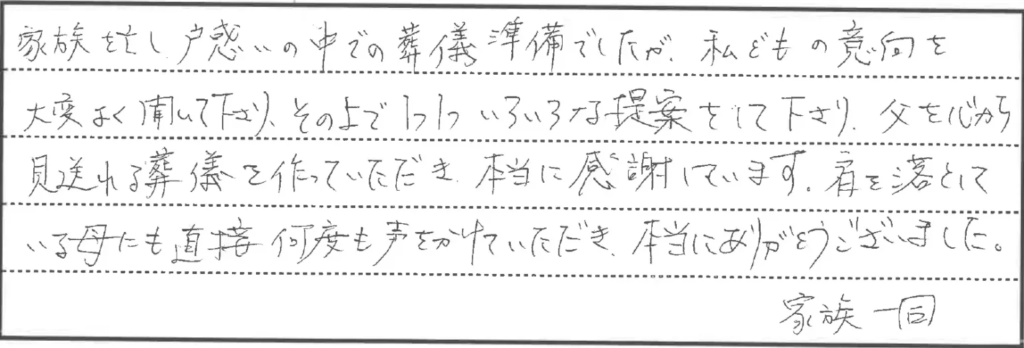 家族を亡し戸惑いの中での葬儀準備でしたが、私どもの意向を
大変よく聞いて下さり、その上で1つ1ついろいろな提案をして下さり、父を心から
見送れる葬儀を作っていただき、本当に感謝しています。肩を落として
いる母にも直接何度も声をかけていただき、本当にありがとうございました。
家族一同